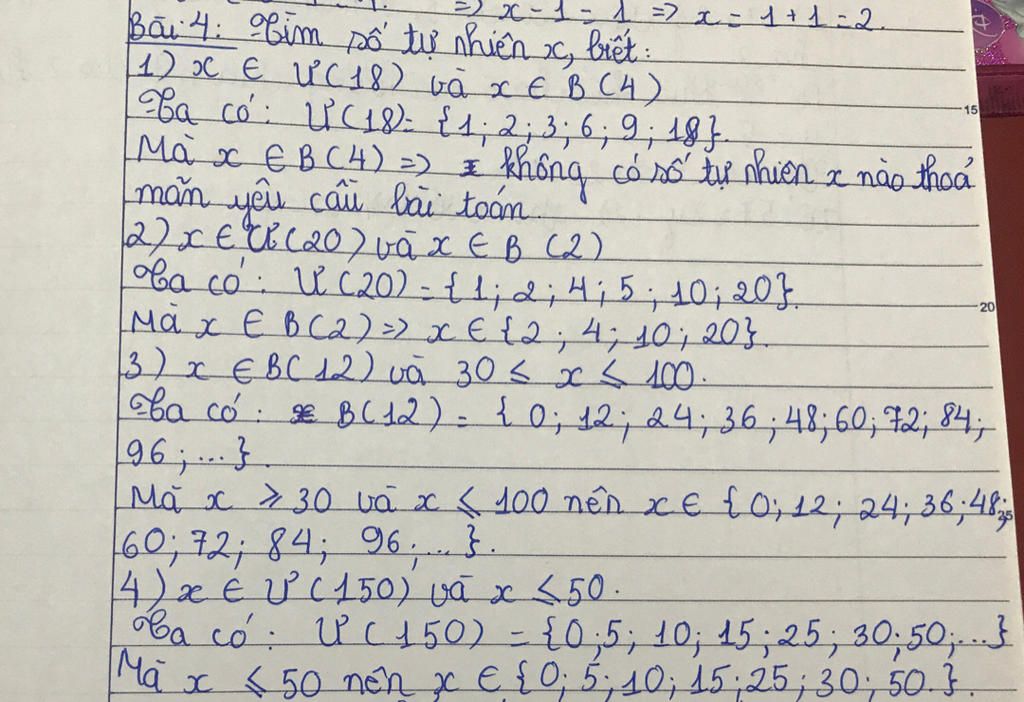 => x - 1 = 1 => x = 1 + 1 = 2.
Bài 4: Tìm số tự nhiên x, biết:
1) x ∈ Ư(18) và x ∈ B(4)
15
Ta có: Ư(18)= {1; 2; 3; 6; 9; 18}.
Mà x ∈ B(4) => không có số tự nhiên x nào thoả
mãn yêu cầu bài toán
2) x ∈ Ư(20) và x ∈ B (2)
Ta có: Ư(20) = {1; 2; 4; 5; 10; 20}.
20
Mà x ∈ B(2) => x ∈ {2; 4; 10; 20}.
3) x ∈ B(12) và 30 ≤ x ≤ 100.
Ta có: B(12) = { 0; 12; 24; 36; 48; 60; 72; 84;
96; ...}.
Mà x ≥ 30 và x ≤ 100 nên x ∈ {0; 12; 24; 36; 48;
25
60; 72; 84; 96; ...}.
4) x ∈ Ư(150) và x ≤ 50.
Ta có: Ư(150) = {0; 5; 10; 15; 25; 30; 50; ...}
Mà x ≤ 50 nên x ∈ {0; 5; 10; 15; 25; 30; 50.}.